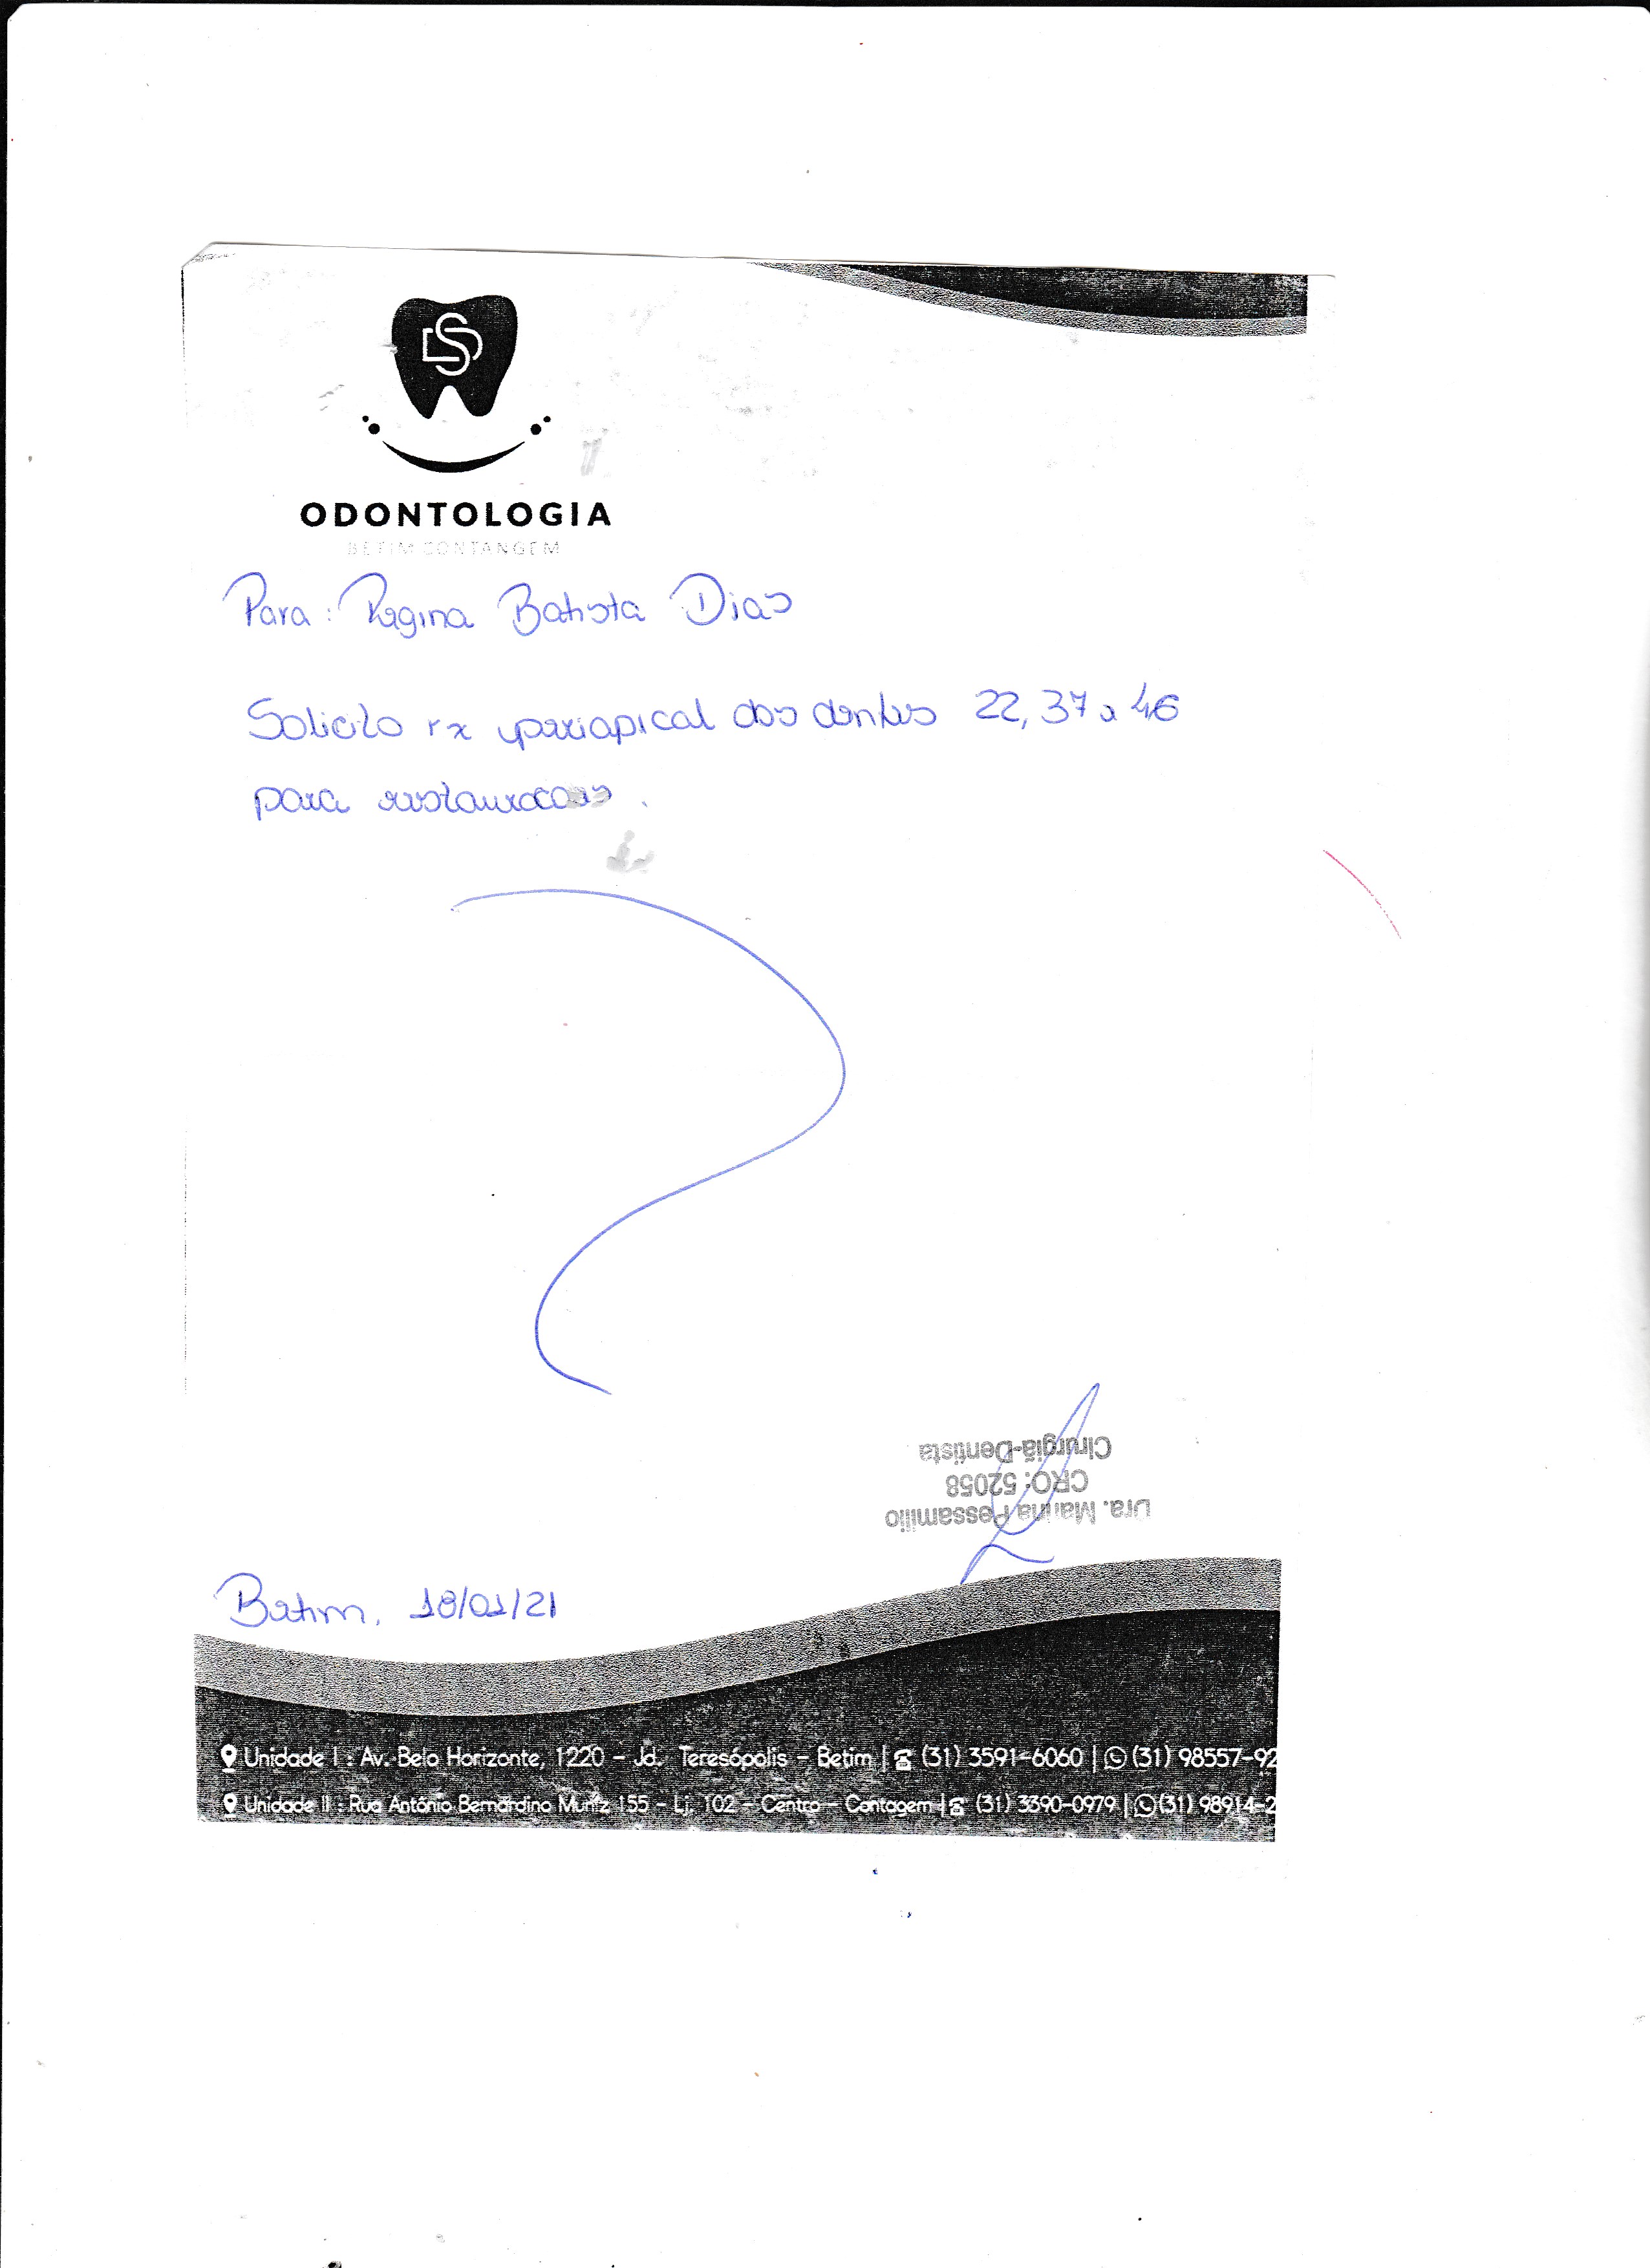 DS
ODONTOLOGIA
BETIM CONTANGEM
Para: Regina Batista Dias
Solicito rx periapical dos dentes 22, 37 e 46
para restauracoes.
Cirurgiã-Dentista
CRO: 52058
Dra. Marina Pessamilio
Betim, 18/01/21
Unidade I : Av. Belo Horizonte, 1220 - Jd. Teresópolis - Betim | (31) 3591-6060 | (31) 98557-92
Unidade II : Rua Antônio Bernardino Muniz 155 - Lj. 102 - Centro - Contagem | (31) 3390-0979 | (31) 98914-2